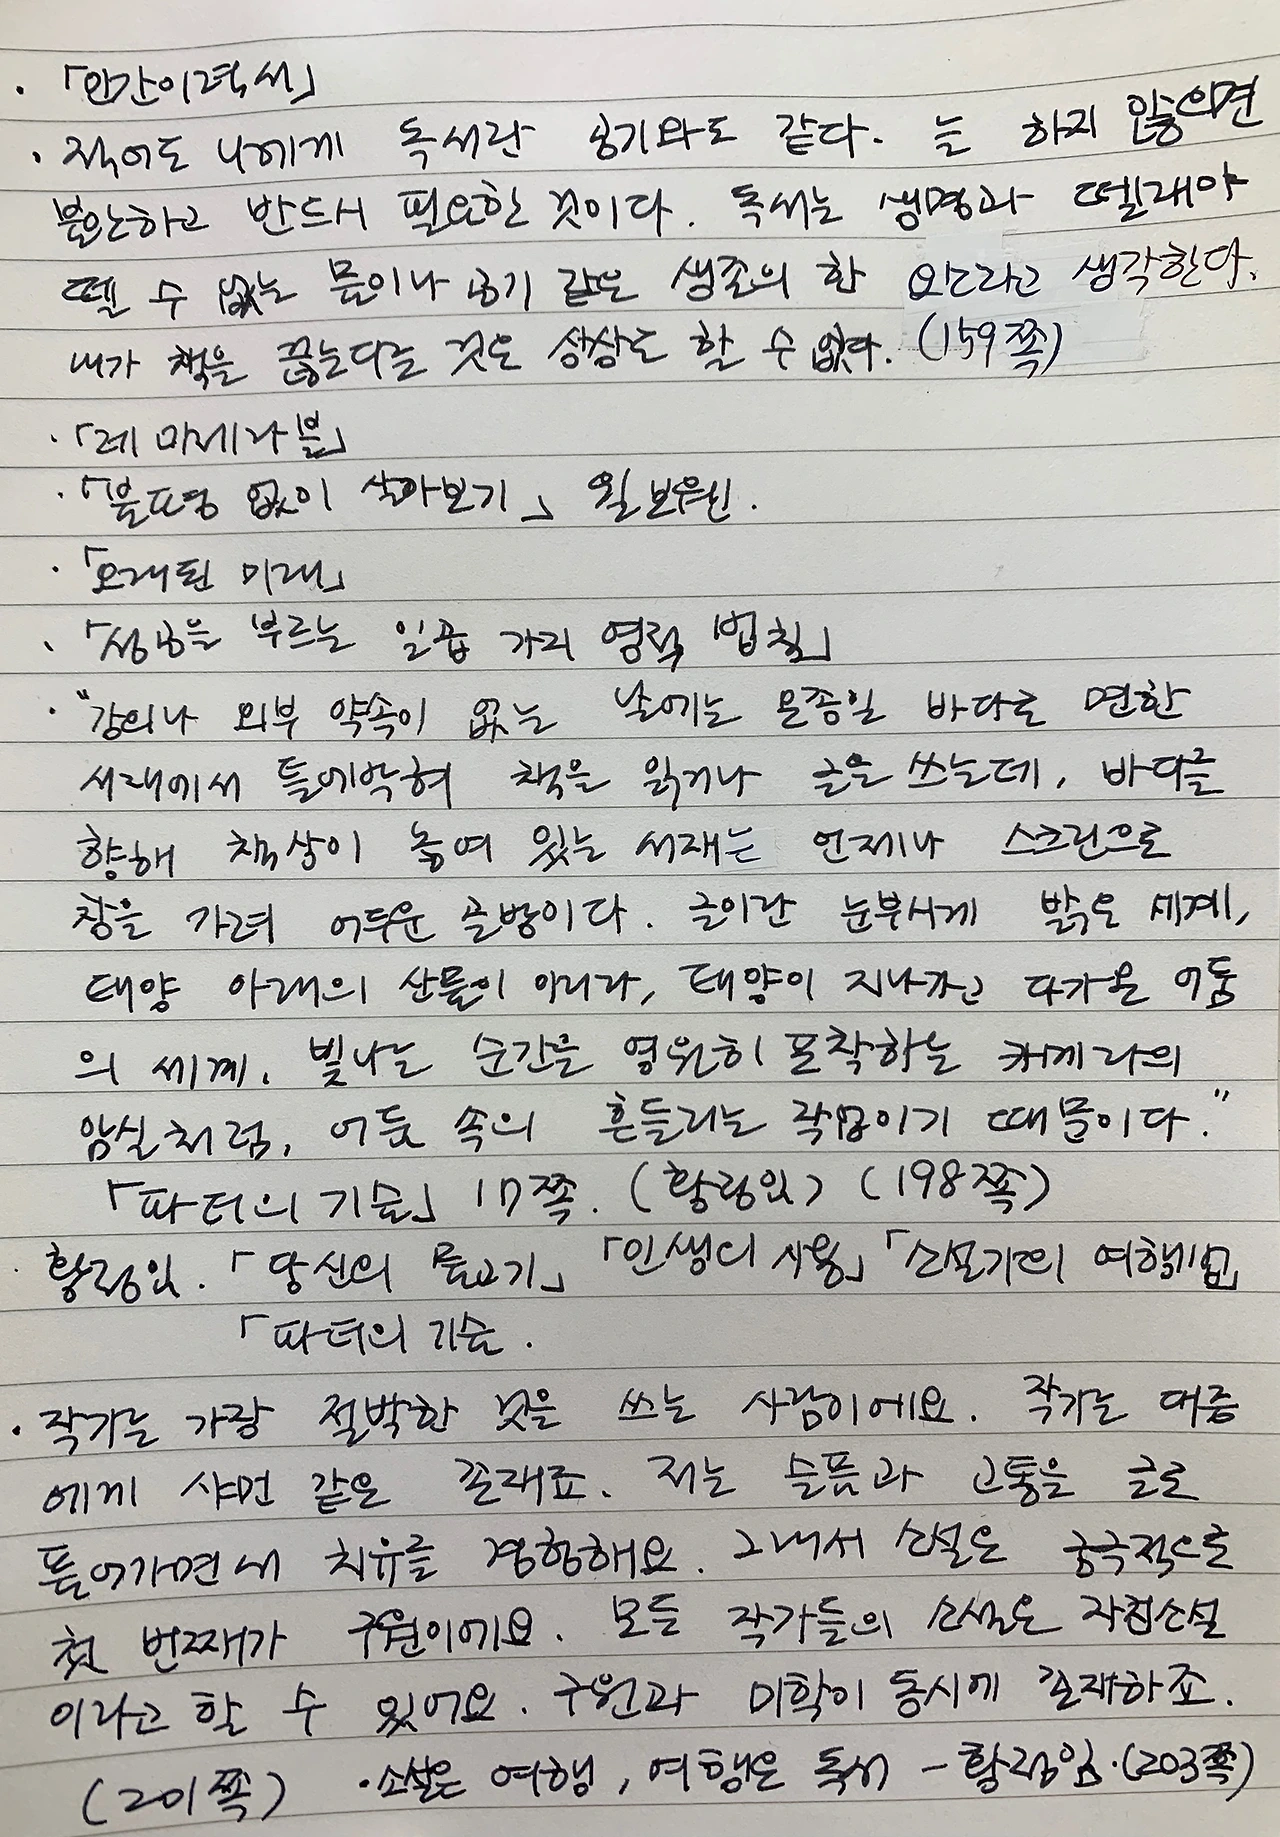 · 「인간이력서」
· 적어도 나에게 독서란 공기와도 같다. 늘 하지 않으면
불안하고 반드시 필요한 것이다. 독서는 생명과 뗄래야
뗄 수 없는 물이나 공기 같은 생존의 한 생각한다.
내가 책을 끊는다는 것은 상상도 할 수 없다. (159쪽)
· 「레 미제라블」
· 「불평 없이 살아보기」 윌 보웬.
· 「오래된 미래」
· 「성공을 부르는 일곱 가지 영적 법칙」
· "강의나 외부 약속이 없는 날에는 온종일 바다로 면한
서재에서 틀어박혀 책을 읽거나 글을 쓰는데, 바다를
향해 책상이 놓여 있는 서재는 언제나 스크린으로
창을 가려 어두운 골방이다. 글이란 눈부시게 밝은 세계,
태양 아래의 산물이 아니라, 태양이 지나가고 다가온 어둠
의 세계. 빛나는 순간을 영원히 포착하는 카메라의
암실처럼, 어둠 속의 흔들리는 작업이기 때문이다."
「파티의 기술」 17쪽. (함정임) (198쪽)
· 함정임. 「당신의 물고기」 「인생의 사용」 「소설가의 여행법」
「파티의 기술.
· 작가는 가장 절박한 것을 쓰는 사람이에요. 작가는 대중
에게 샤먼 같은 존재죠. 저는 슬픔과 고통을 글로
풀어가면서 치유를 경험해요. 그래서 소설은 궁극적으로
첫 번째가 구원이에요. 모든 작가들의 소설은 자전소설
이라고 할 수 있어요. 구원과 미학이 동시에 존재하죠.
(201쪽) · 소설은 여행, 여행은 독서 - 함정임. (203쪽)